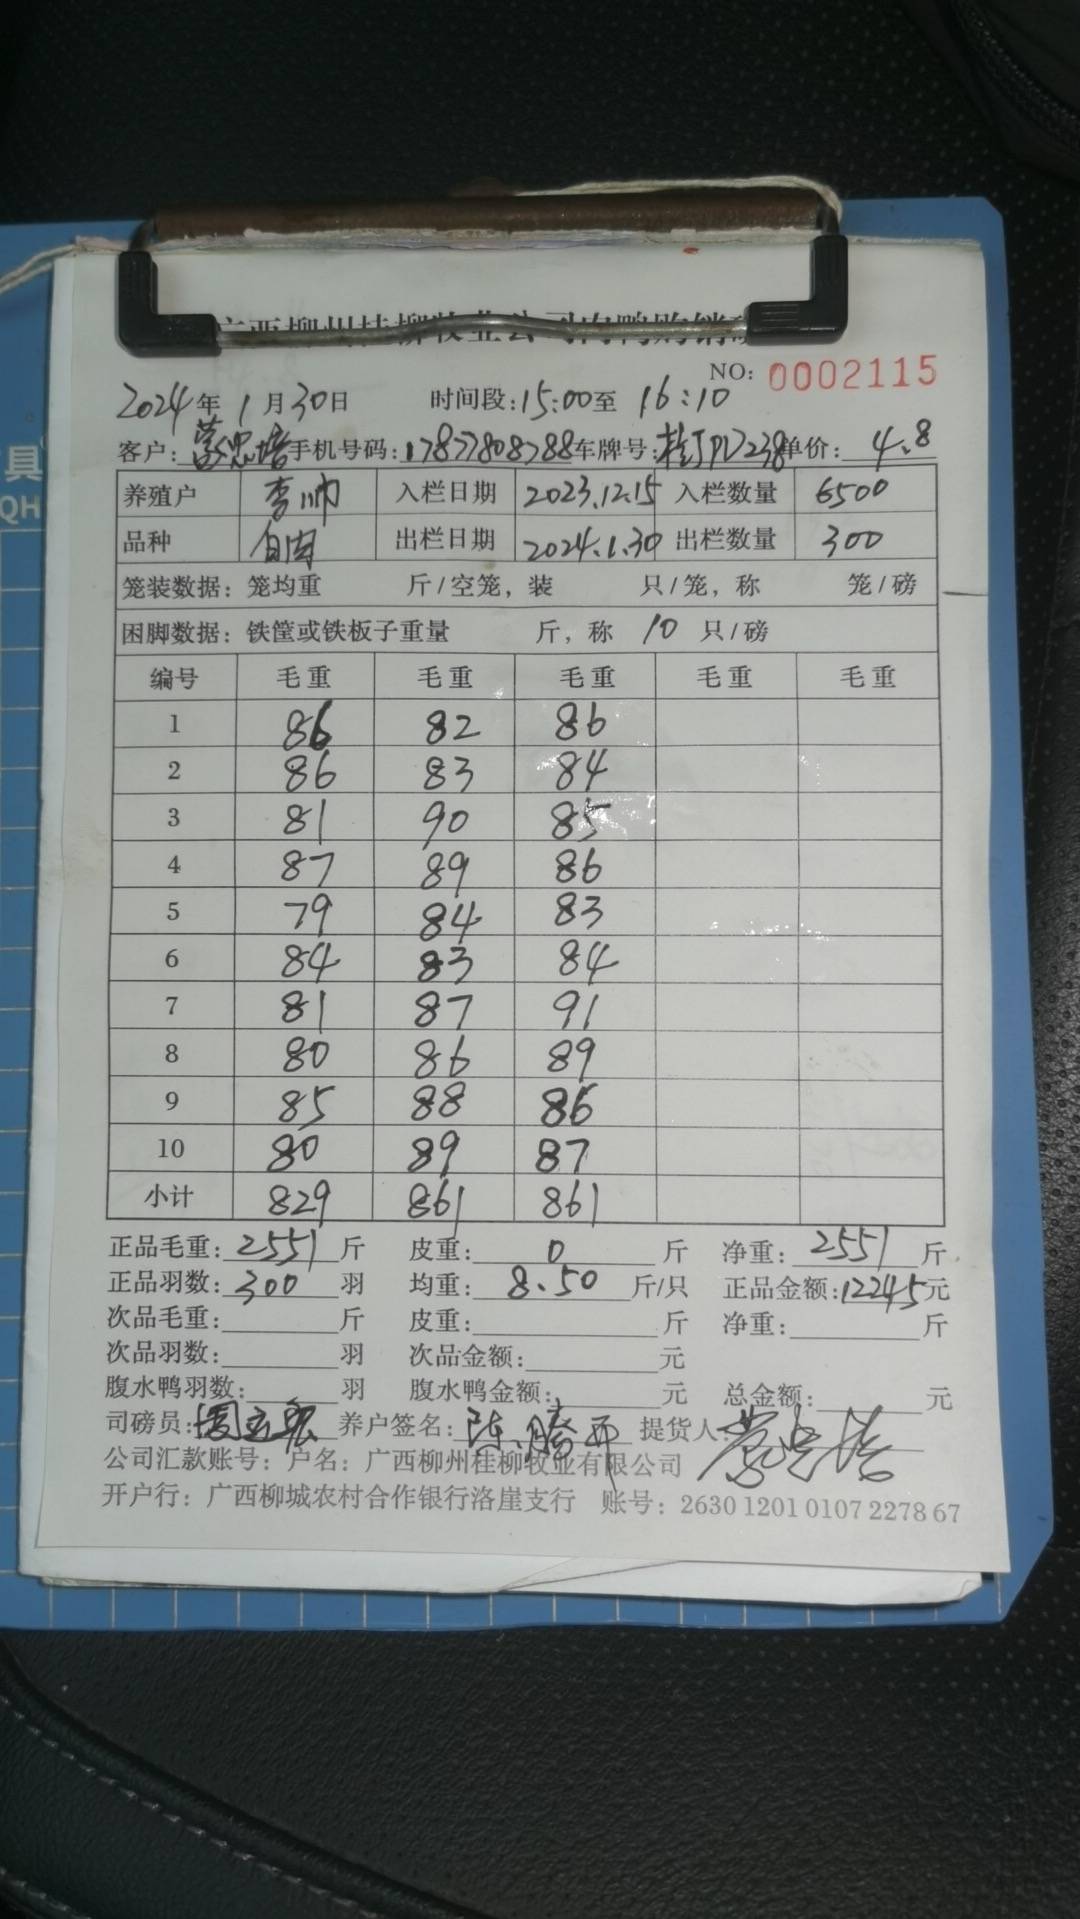 广西柳州桂柳牧业公司肉鸭购销
NO: 0002115
2024年1月30日 时间段:15:00至 16:10
客户: 手机号码:17877808788 车牌号: 单价: 4.8
养殖户 李帅 入栏日期 2023.12.15 入栏数量 6500
品种 自肉 出栏日期 2024.1.30 出栏数量 300
笼装数据: 笼均重 斤/空笼, 装 只/笼, 称 笼/磅
困脚数据: 铁筐或铁板子重量 斤, 称 10 只/磅
编号 毛重 毛重 毛重 毛重 毛重
1 86 82 86
2 86 83 84
3 81 90 85
4 87 89 86
5 79 84 83
6 84 83 84
7 81 87 91
8 80 86 89
9 85 88 86
10 80 89 87
小计 829 861 861
正品毛重: 2551 斤 皮重: 0 斤 净重: 2551 斤
正品羽数: 300 羽 均重: 8.50 斤/只 正品金额: 12245元
次品毛重: 斤 皮重: 斤 净重: 斤
次品羽数: 羽 次品金额: 元
腹水鸭羽数: 羽 腹水鸭金额: 元 总金额: 元
司磅员: 养户签名: 陈腾西 提货人
公司汇款账号: 户名: 广西柳州桂柳牧业有限公司
开户行: 广西柳城农村合作银行洛崖支行 账号: 2630 1201 0107 2278 67
具
QH